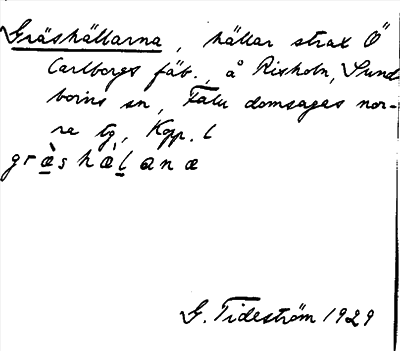 Gräshällarna, hällar strax Ö
Carlborgs fäb., å Rixholn, Sund
borns sn, Falu domsagas nor-
ra tg, Kopp. l
græ̀shæ̀lanæ
G. Tideström 1929